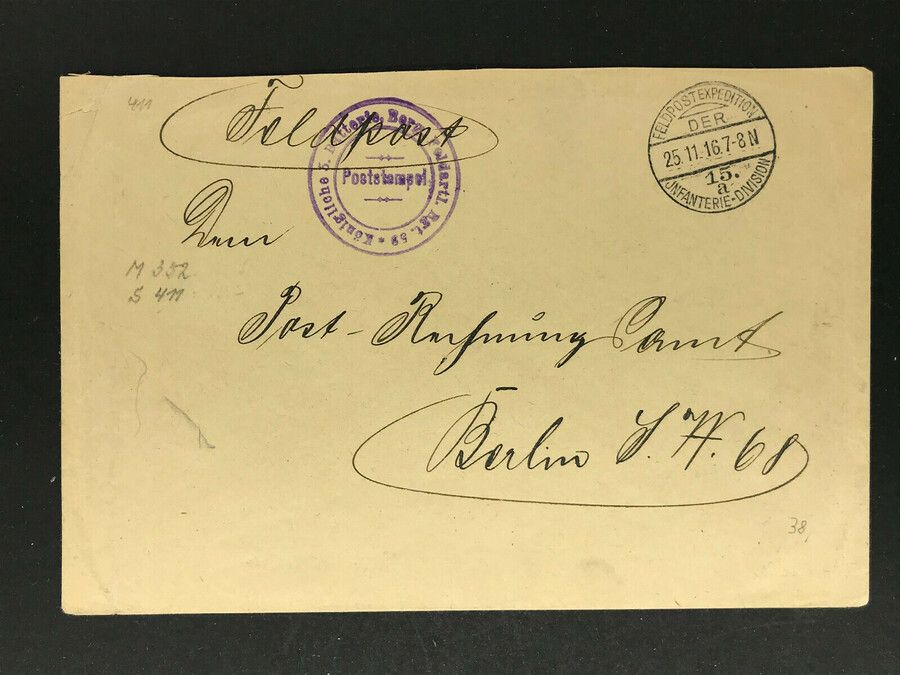 411
Feldpost
Königliche 5. Batterie. Berg. Feldartl. Rgt. 59 *
Poststempel
FELDPOSTEXPEDITION
DER
25.11.16.7-8N
15.
a
INFANTERIE-DIVISION
Dem
M 352
S 411
Post-Rechnungsamt
Berlin S.W. 68
38,